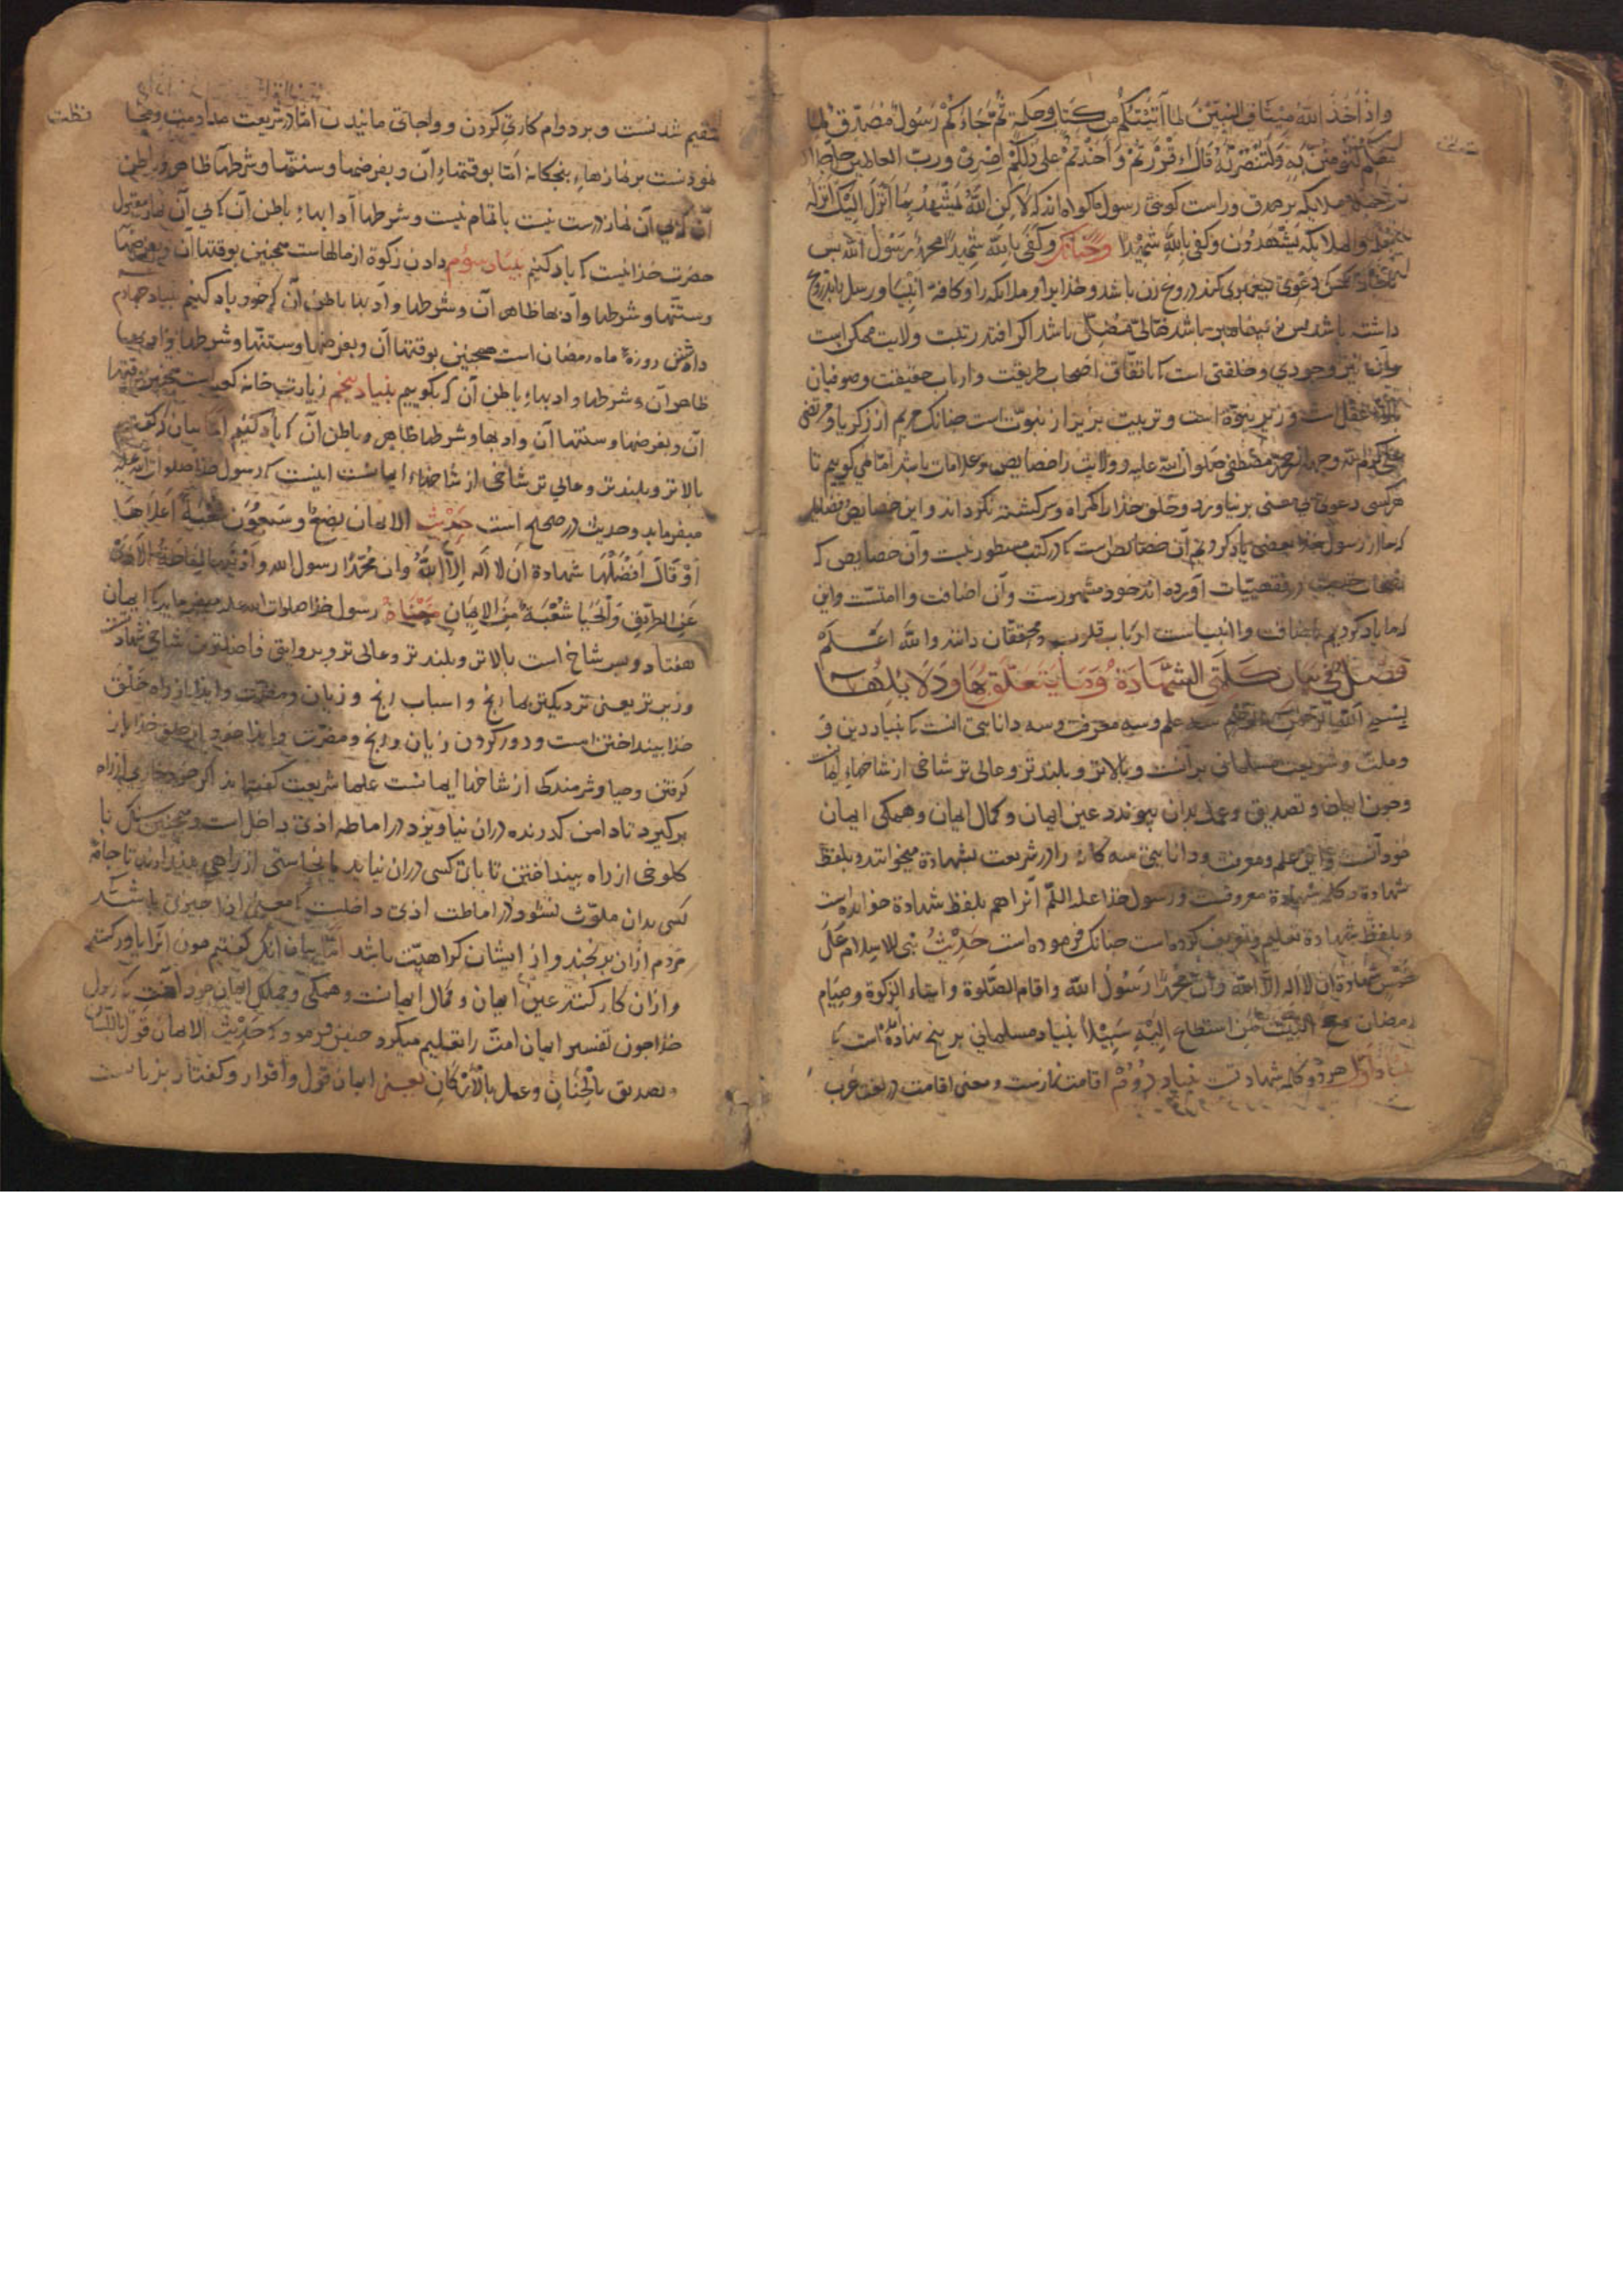 واذ اخذ الله میثاق النبیین لما آتیتکم من کتاب وحکمة ثم جاءکم رسول مصدق لما
معکم لتؤمنن به ولتنصرنه قال ااقررتم واخذتم علی ذلکم اصری ورب العالمین
ملایکه بر صدق وراست کوئی رسول ما کواه اند که لاکن الله یشهد بما انزل الیک انزله
والملایکه یشهدون وکفی بالله شهیدا وچنانک وکفی بالله شهیدا محمد رسول الله پس
دعوی کند دروغ زن باشد وخدایرا وملایکه را وکافه انبیا ورسل را بدروغ
داشته باشد پس باشد ضالی مضلی باشد اکر افتد رتبت ولایت ممکن است
وآن نیز وجودی وخلقتی است کا باتفاق اصحاب طریقت وارباب حقیقت وصوفیان
عقل است وزیر نبوة است وتربیت پزیر از نبوت است چنانک مریم از زکریا ومرتضی
کرم الله وجهه از محمد مصطفی صلوات الله علیه وولایت را خصایص وعلامات باشد اما می کوییم تا
هرکسی دعوی بی معنی برنیاورد وخلق خذا را کمراه وسرکشته نکرداند واین خصایص
که ما از رسول خذا بعضی یاد کردیم آن خصایص است کا در کتب مسطور نیست وآن خصایص که
آورده اند خود مشهورست وآن اضافت واامتست واین
که ما یاد کردیم باضافت واانبیاست ارباب قلوب ومحققان دانند والله اعلم
فصل فی بیان کلمتی الشهادة وما یتعلق بها ودلایلها
بسم الله الرحمن الرحیم سه علم وسه معرفت وسه دانایی آنست کا بنیاد دین و
وملت وشریعت مسلمانی بر آنست وبالاتر وبلندتر وعالی تر شاخی از شاخهاء ایمانست
وچون ایمان وتصدیق وعمل بدان پیوندد عین ایمان وکمال ایمان وهمکی ایمان
خود آنست واین علم ومعرفت ودانایی سه کانه را در شریعت بشهادة میخوانند وبلفظ
شهادة وکلمه شهادة معروفست ورسول خذا علیه السلم آنرا هم بلفظ شهادة خوانده است
وبلفظ شهادة تعلیم وتعریف کرده است چنانک فرموده است حدیث بنی الاسلام علی
خمس شهادة ان لا اله الا الله وان محمدا رسول الله واقام الصلوة وایتاء الزکوة وصیام
رمضان وحج البیت من استطاع الیه سبیلا بنیاد مسلمانی بر پنج نهاده است کا
بنیاد اول هر دو کلمه شهادتست بنیاد دوم اقامت نمازست ومعنی اقامت در لغت عرب
مقیم شدنست وبر دوام کاری کردن وواجاتی مانیدن اما در شریعت مداومت
نمودنست بر نمازهاء پنجکانه اما بوقتهاء آن وبفرضها وسنتها وشرطها ظاهر وباطن
آن کی بی آن نماز درست نیست باتمام نیست وشرطها آدابهاء باطن آن کا بی آن نماز مقبول
حضرت خذا نیست کا یاد کنیم بنیاد سوم دادن زکوة از مالهاست همچنین بوقتها آن وبفرضها
وسنتها وشرطها وادبها ظاهر آن وشرطها وادبها باطن آن که خود یاد کنیم بنیاد چهارم
داشتن روزه ماه رمضان است همچنین بوقتها آن وبفرضها وسنتها وشرطها وادبها
ظاهر آن وشرطها وادبهاء باطن آن که بکوییم بنیاد پنجم زیارت خانه کعبه است همچنین بوقتها
آن وبفرضها وسنتها آن وادبها وشرطها ظاهر وباطن آن کا یاد کنیم اما بیان آنکه کفتیم
بالاتر وبلندتر وعالی تر شاخی از شاخهاء ایمانست اینست که رسول خذا صلوات الله علیه
میفرماید وحدیث در صحیح است حدیث الایمان بضع وسبعون شعبة اعلاها
او قال افضلها شهادة ان لا اله الا الله وان محمدا رسول الله وادنیها اماطة الاذی
عن الطریق والحیا شعبة من الایمان معناه رسول خذا صلوات الله علیه میفرماید کا ایمان
هفتاد وسر شاخ است بالاتر وبلندتر وعالی تر وبروایتی فاضلترین شاخی شهادتست
وزیرتر یعنی نزدیکترها رنج واسباب رنج وزیان ومضرت وایذا از راه خلق
خذا بینداختن است ودور کردن زیان ورنج ومضرت وایذا خود از خلق خذا باز
کرفتن وحیا وشرمندکی از شاخها ایمانست علما شریعت کفته اند اکر خود خاری از راه
برکیرد تا دامن کذرنده دران نیاویزد در اماطه اذی داخل است وهمچنین سنک یا
کلوخی از راه بینداختن تا پای کسی دران نیاید یا نجاستی از راهی بیندازند تا جامه
کسی بدان ملوث نشود در اماطت اذی داخلست کا معنی اذا چیزی باشد
مردم ازان برنجند واز ایشان کراهیت باشد اما بیان آنک کفتیم چون آنرا باور کنند
وازان کار کنند عین ایمان وکمال ایمانست وهمکی وجملکی ایمان خود آنست کا رسول
خذا چون تفسیر ایمان امت را تعلیم میکرد چنین فرمود که حدیث الایمان قول باللسان
وتصدیق بالجنان وعمل بالارکان یعنی ایمان قول واقرار وکفتار بزبانست